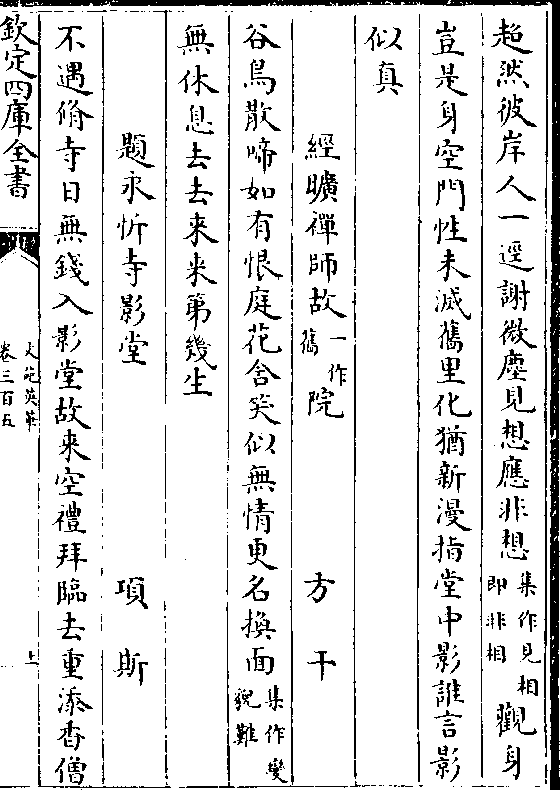 超然彼岸人一逕謝微塵見想應非想集作見相即非相觀身
豈是身空門性未滅舊里化猶新漫指堂中影誰言影
似真
經曠禪師故一作舊院 方干
谷鳥散啼如有恨庭花含笑似無情更名換面集作變貌難
無休息去去来来第幾生
題永忻寺影堂 項斯
不遇脩寺日無錢入影堂故来空禮拜臨去重添香僧
欽定四庫全書
文苑英華
卷三百五